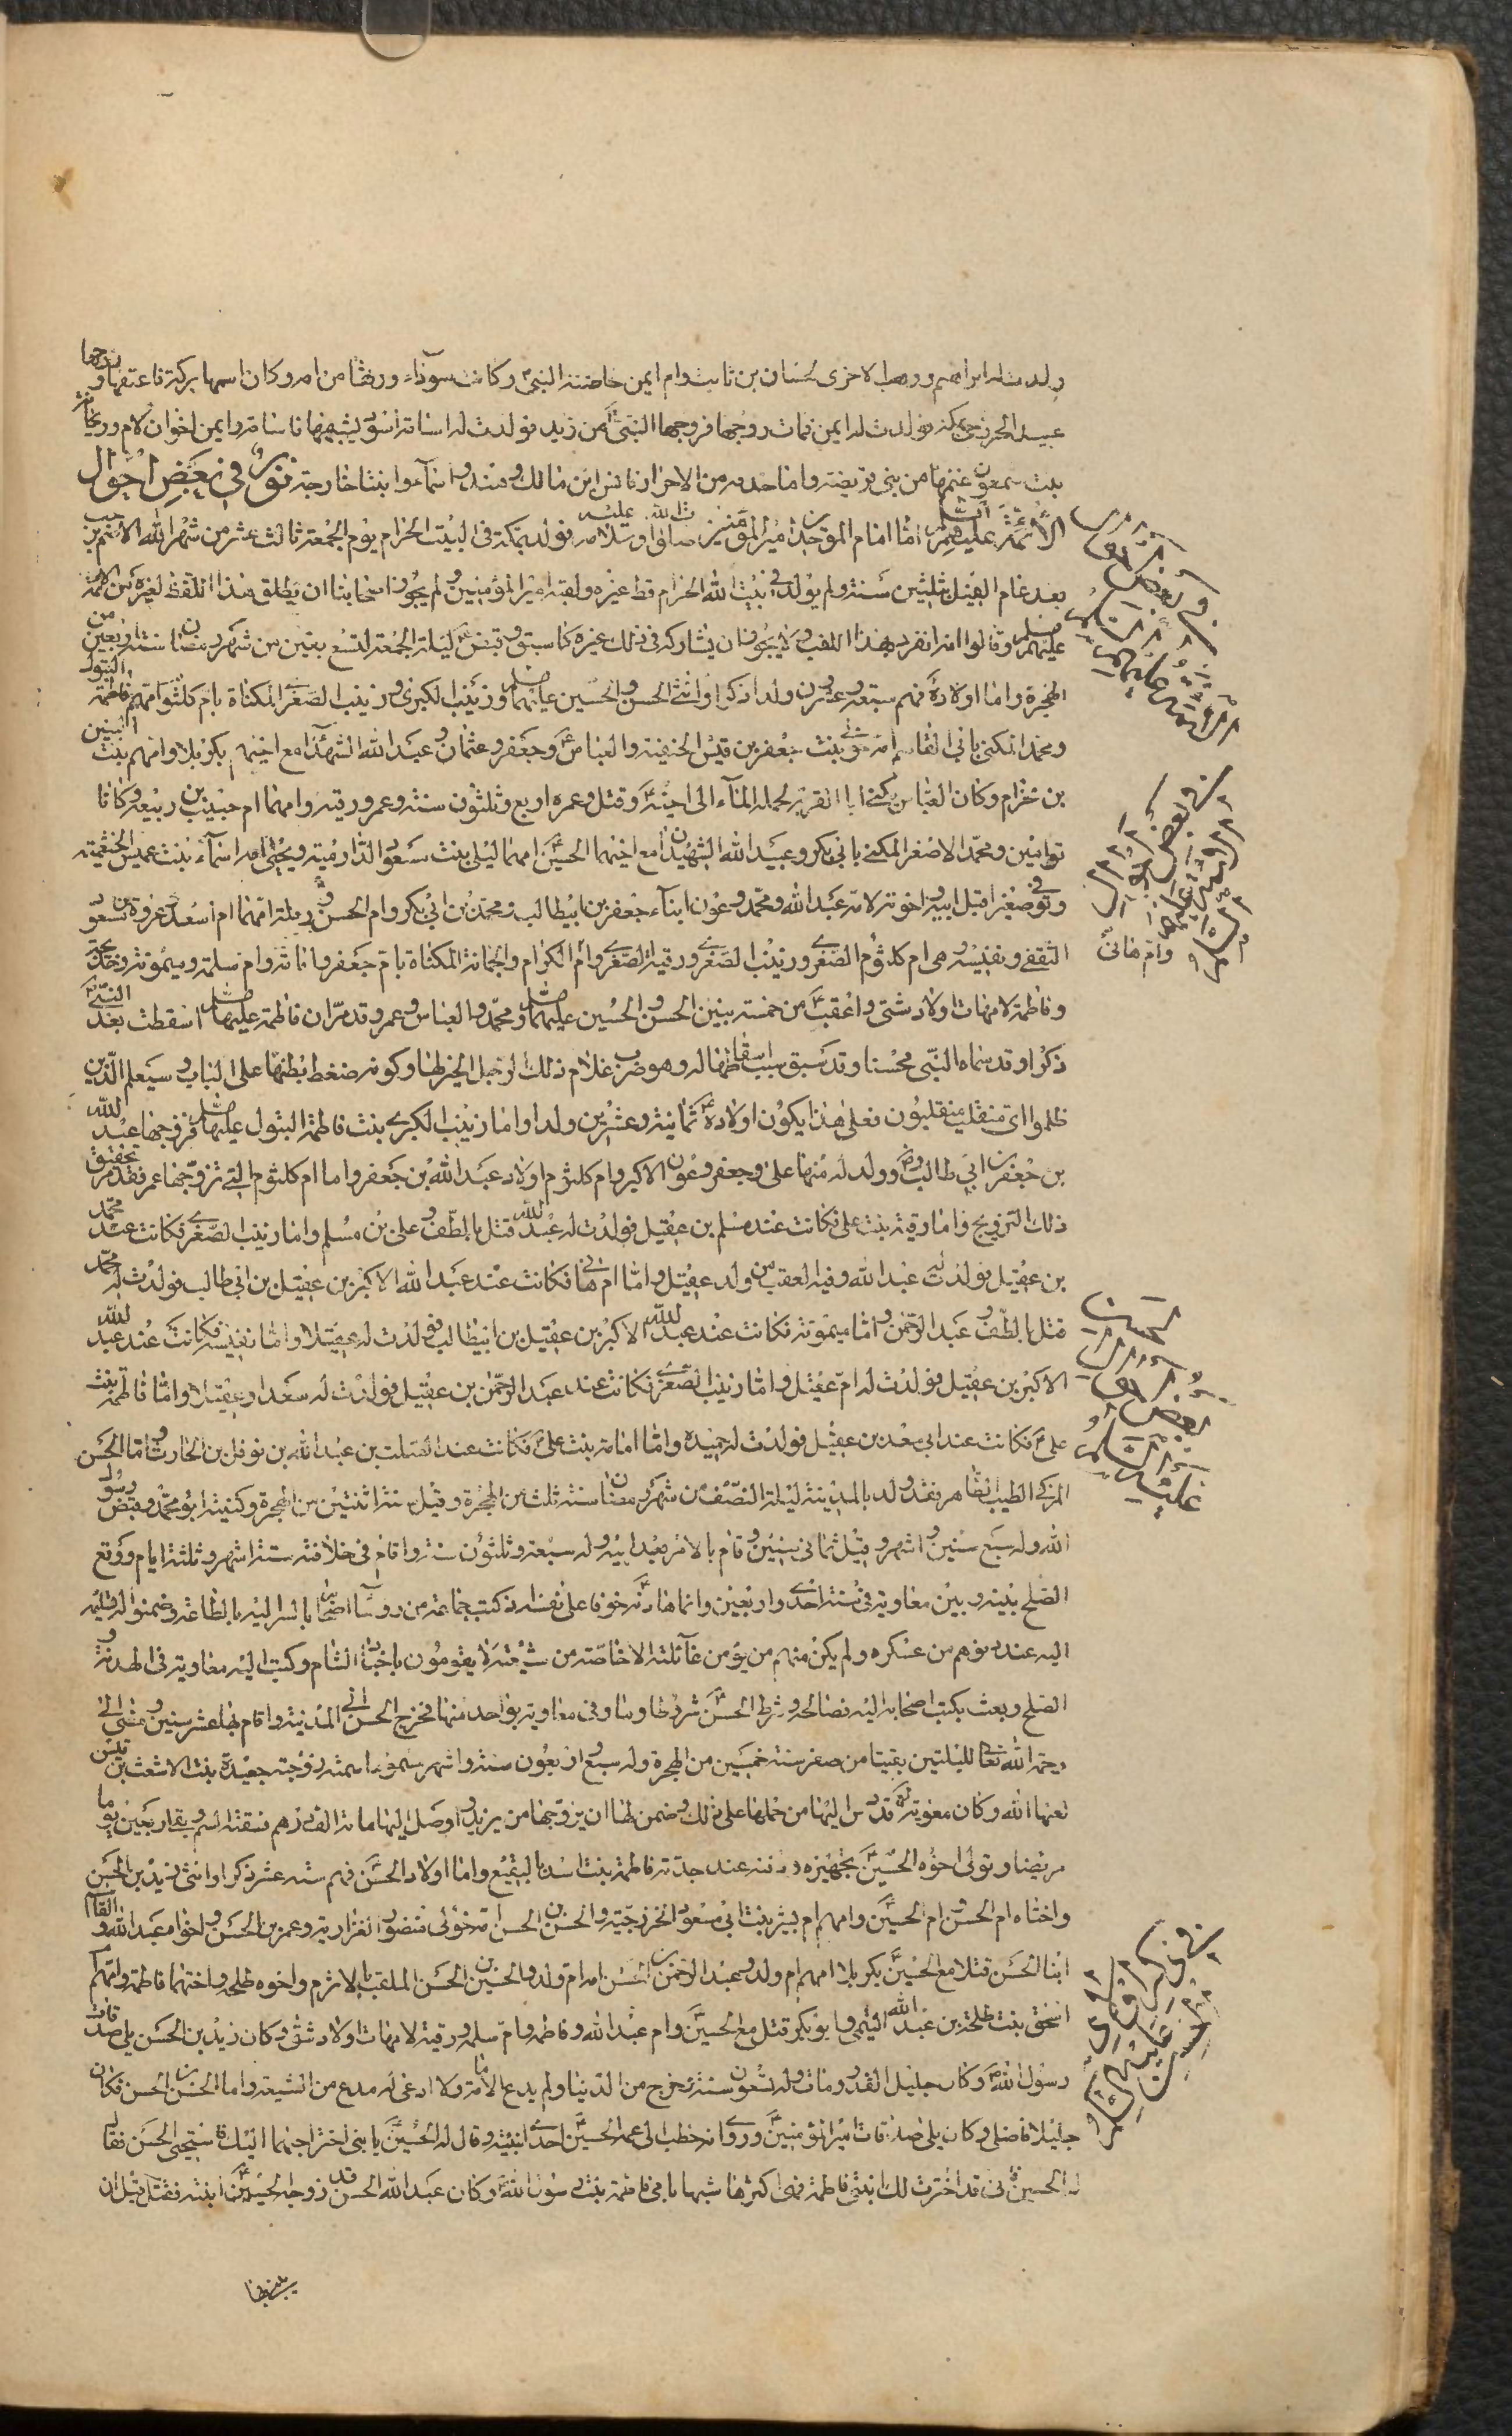 ولدت له ابراهيم ووهب الاخرى لحسان بن ثابت وام ايمن حاضنة النبي وكانت سوداء ورثها من امه وكان اسمها بركة فاعتقها وزوجها
عبيد الخزرجي بمكة فولدت له ايمن فمات زوجها فزوجها النبي من زيد فولدت له اسامة اسود يشبهها فاسامة وايمن اخوان لام وريحانة
بنت شمعون غنمها من بني قريضة واما خدمه من الاحرار فانس ابن مالك وهند واسماء ابنتا خارجة نور في بعض احوال
الأئمة عليهم السلام اما امام الموحدين امير المؤمنين صلوات الله وسلامه عليه فولد بمكة في البيت الحرام يوم الجمعة ثالث عشر من شهر الله الاصم رجب
بعد عام الفيل بثلثين سنة ولم يولد في بيت الله الحرام قط غيره ولقبه امير المؤمنين ولم يجوز اصحابنا ان يطلق هذا اللفظ لغيره من الائمة
عليهم السلام وقالوا انه انفرد بهذا اللقب ولا يجوز ان يشاركه في ذلك غيره كما سبق وقبض ليلة الجمعة لتسع بقين من شهر رمضان سنة اربعين من
الهجرة واما اولاده فهم سبعة وعشرون ولدا ذكرا وانثى الحسن والحسين عليهما السلام وزينب الكبرى وزينب الصغرى المكناة بام كلثوم امهم فاطمة البتول
ومحمد المكنى بابي القاسم امه خولة بنت جعفر بن قيس الحنفية والعباس وجعفر وعثمان وعبد الله الشهداء مع اخيهم بكربلا وامهم ام البنين بنت
بن حزام وكان العباس يكنى ابا القربة لحمله الماء الى اخيه وقتل وعمره اربع وثلثون سنة وعمر ورقية وامهما ام حبيب بن ربيعة وكانا
توامين ومحمد الاصغر المكنى بابي بكر وعبيد الله الشهيدان مع اخيهما الحسين امهما ليلى بنت مسعود الدارمية ويحيى امه اسماء بنت عميس الخثعمية
وتوفي صغيرا قبل ابيه واخوته لامه عبد الله ومحمد وعون ابناء جعفر بن ابيطالب ومحمد بن ابي بكر وام الحسن ورملة امهما ام سعد بنت عروة بن مسعود
الثقفي ونفيسة وهي ام كلثوم الصغرى وزينب الصغرى ورقية الصغرى وام الكرام وجمانة المكناة بام جعفر وامامة وام سلمة وميمونة وخديجة
وام هانئ
وفاطمة لامهات اولاد شتى واعقب من خمسة بنين الحسن والحسين عليهما السلام ومحمد والعباس وعمر وقد مر ان فاطمة عليها السلام اسقطت بعد النبي
ذكرا وقد سماه النبي محسنا وقد سبق سبب اسقاطها له وهو ضرب غلام ذلك الرجل الخبر لها وكونه ضغط بطنها على الباب وسيعلم الذين
ظلموا اي منقلب ينقلبون فعلى هذا يكون اولاده ثمانية وعشرين ولدا واما زينب الكبرى بنت فاطمة البتول عليها السلام فزوجها عبد الله
بن جعفر بن ابي طالب وولد له منها علي وجعفر وعون الاكبر وام كلثوم اولاد عبد الله بن جعفر واما ام كلثوم التي تزوجها عمر فقد مر تحقيق
ذلك التزويج واما رقية بنت علي فكانت عند مسلم بن عقيل فولدت له عبد الله قتل بالطف وعلي بن مسلم واما زينب الصغرى فكانت عند محمد
بن عقيل فولدت له عبد الله وفيه العقب من ولد عقيل واما ام هاني فكانت عند عبد الله الاكبر بن عقيل بن ابي طالب فولدت له محمد
قتل بالطف وعبد الرحمن واما ميمونة فكانت عند عبد الله الاكبر بن عقيل بن ابيطالب فولدت له عقيلا واما نفيسة فكانت عند عبد الله
الاكبر بن عقيل فولدت له ام عقيل واما زينب الصغرى فكانت عند عبد الرحمن بن عقيل فولدت له سعدا وعقيلا واما فاطمة بنت
علي فكانت عند ابي سعد بن عقيل فولدت له حميدة واما امامة بنت علي فكانت عند الصلت بن عبد الله بن نوفل بن الحارث واما الحسن
المزكى الطيب الطاهر فقد ولد بالمدينة ليلة النصف من شهر رمضان سنة ثلث من الهجرة وقيل سنة اثنتين من الهجرة وكنيته ابو محمد وقبض رسول
الله وله سبع سنين واشهر وقيل ثماني سنين وقام بالامر بعد ابيه وله سبعة وثلثون سنة واقام في خلافته ستة اشهر وثلثة ايام ووقع
الصلح بينه وبين معاوية في سنة احدى واربعين وانما هادنه خوفا على نفسه اذ كتب جماعة من روسآء اصحابه اليه بالطاعة وضمنوا له تسليمه
اليه عند دنوهم من عسكره ولم يكن منهم من يؤمن غائلته الا خاصة من شيعته لا يقومون باجناد الشام وكتب اليه معاوية في الهدنة و
الصلح وبعث بكتب اصحابه اليه فصالحه وشرط الحسن شروطا وما وفى معاوية بواحد منها فخرج الحسن الى المدينة واقام بها عشر سنين ومضى الى
رحمة الله تعالى لليلتين بقيتا من صفر سنة خمسين من الهجرة وله سبع واربعون سنة واشهر مسموما سمته زوجته جعدة بنت الاشعث بن قيس
لعنها الله وكان معوية قد دس اليها من حملها على ذلك وضمن لها ان يزوجها من يزيد واوصل اليها مائة الف درهم فسقته السم وبقي اربعين يوما
مريضا وتولى اخوه الحسين تجهيزه ودفنه عند جدته فاطمة بنت اسد بالبقيع واما اولاد الحسن فهم ستة عشر ذكرا وانثى زيد بن الحسن
واختاه ام الحسن وام الحسين وامهم ام بشير بنت ابي مسعود الخزرجية والحسن بن الحسن امه خولة بنت منضور الفزارية وعمر بن الحسن واخواه عبد الله والقاسم
ابنا الحسن قتلا مع الحسين بكربلا امهم ام ولد وعبد الرحمن بن الحسن امه ام ولد والحسين بن الحسن الملقب بالاثرم واخوه طلحة واختهما فاطمة وامهم ام
اسحق بنت طلحة بن عبد الله التيمي وابو بكر قتل مع الحسين وام عبد الله وفاطمة وام سلمة ورقية لامهات اولاد شتى وكان زيد بن الحسن يلي صدقات
رسول الله وكان جليل القدر ومات وله تسعون سنة وخرج من الدنيا ولم يدع الامامة ولا ادعى له مدع من الشيعة واما الحسن بن الحسن فكان
جليلا فاضلا وكان يلي صدقات امير المؤمنين وروي انه خطب الى عمه الحسين احدى ابنتيه وقال له الحسين يا بني اختر احبهما اليك فاستحيى الحسن فقال
له الحسين فاني قد اخترت لك ابنتي فاطمة فهي اكثرها شبها بامي فاطمة بنت رسول الله وكان عبد الله الحسن قد زوجه الحسين ابنته فقتل قبل ان
يبني بها